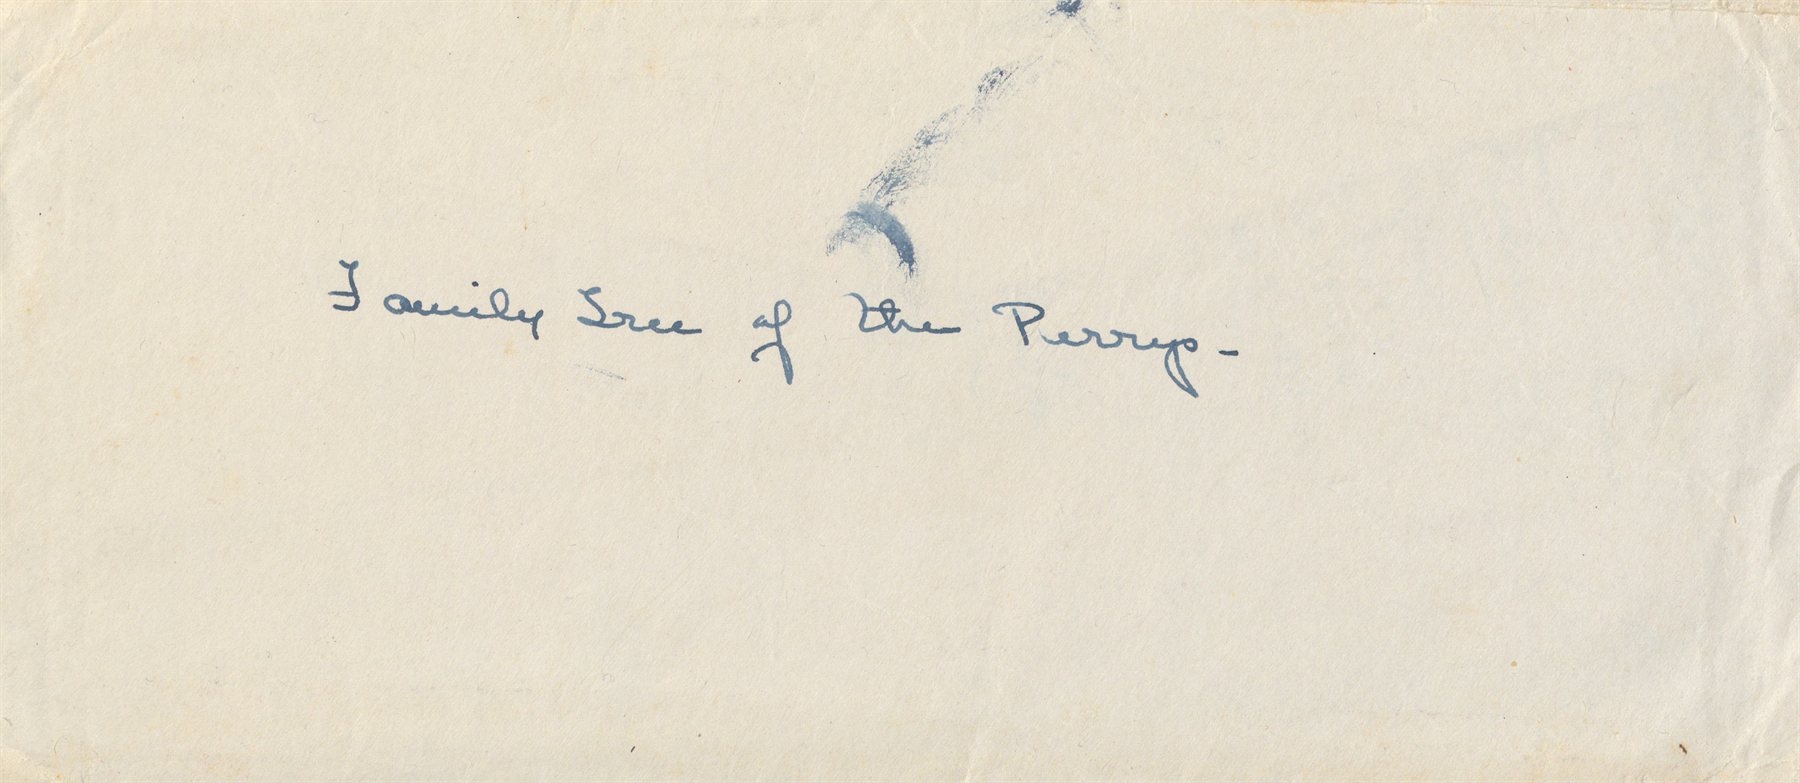 Family Tree of the Perrys -